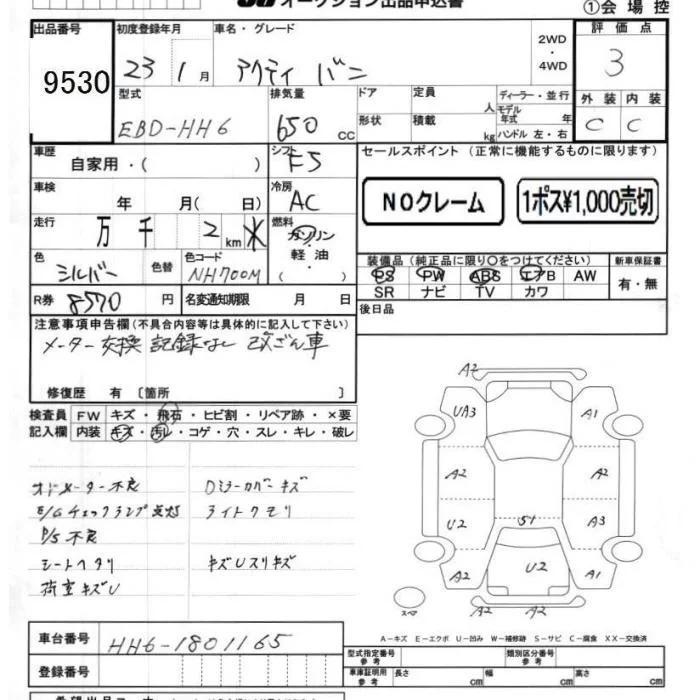 オークション出品申込書
①会場控
出品番号
9530
初度登録年月
23 1月
車名・グレード
アクティ バン
2WD
・
4WD
評価点
3
型式
EBD-HH6
排気量
650 CC
ドア
形状
定員 人
積載 kg
ディーラー・並行
モデル年式 年
ハンドル 左・右
外装 内装
C C
車歴
自家用・( )
シフト
F5
セールスポイント (正常に機能するものに限ります)
NOクレーム
1ポス¥1,000売切
車検
年 月( 日)
冷房
AC
走行
万 千 2 km
燃料
ガソリン
・
軽油
・
( )
色
シルバー
色替
色コード
NH700M
装備品 (純正品に限り〇をつけてください)
PS PW ABS エアB AW
SR ナビ TV カワ
新車保証書
有・無
R券 8570 円
名変通知期限 月 日
後日品
注意事項申告欄(不具合内容等は具体的に記入して下さい)
メーター交換 記録なし 改ざん車
修復歴 有 〔箇所 〕
検査員記入欄
FW キズ・飛石・ヒビ割・リペア跡・×要
内装 キズ・汚レ・コゲ・穴・スレ・キレ・破レ
オドメーター不良
E/Gチェックランプ点灯
P/S不良
シートヘタリ
荷室キズU
Dミラーカバーキズ
ライトクモリ
キズUスリキズ
A2
UA3 A1
A2 A2
U2 S1 A3
A2 U2 A1
A2 A2
スペア
A-キズ E-エクボ U-凹み W-補修跡 S-サビ C-腐食 XX-交換済
車台番号
HH6-1801165
登録番号
型式指定番号
参考
類別区分番号
参考
車庫証明用
参考
長さ cm
幅 cm
高さ cm